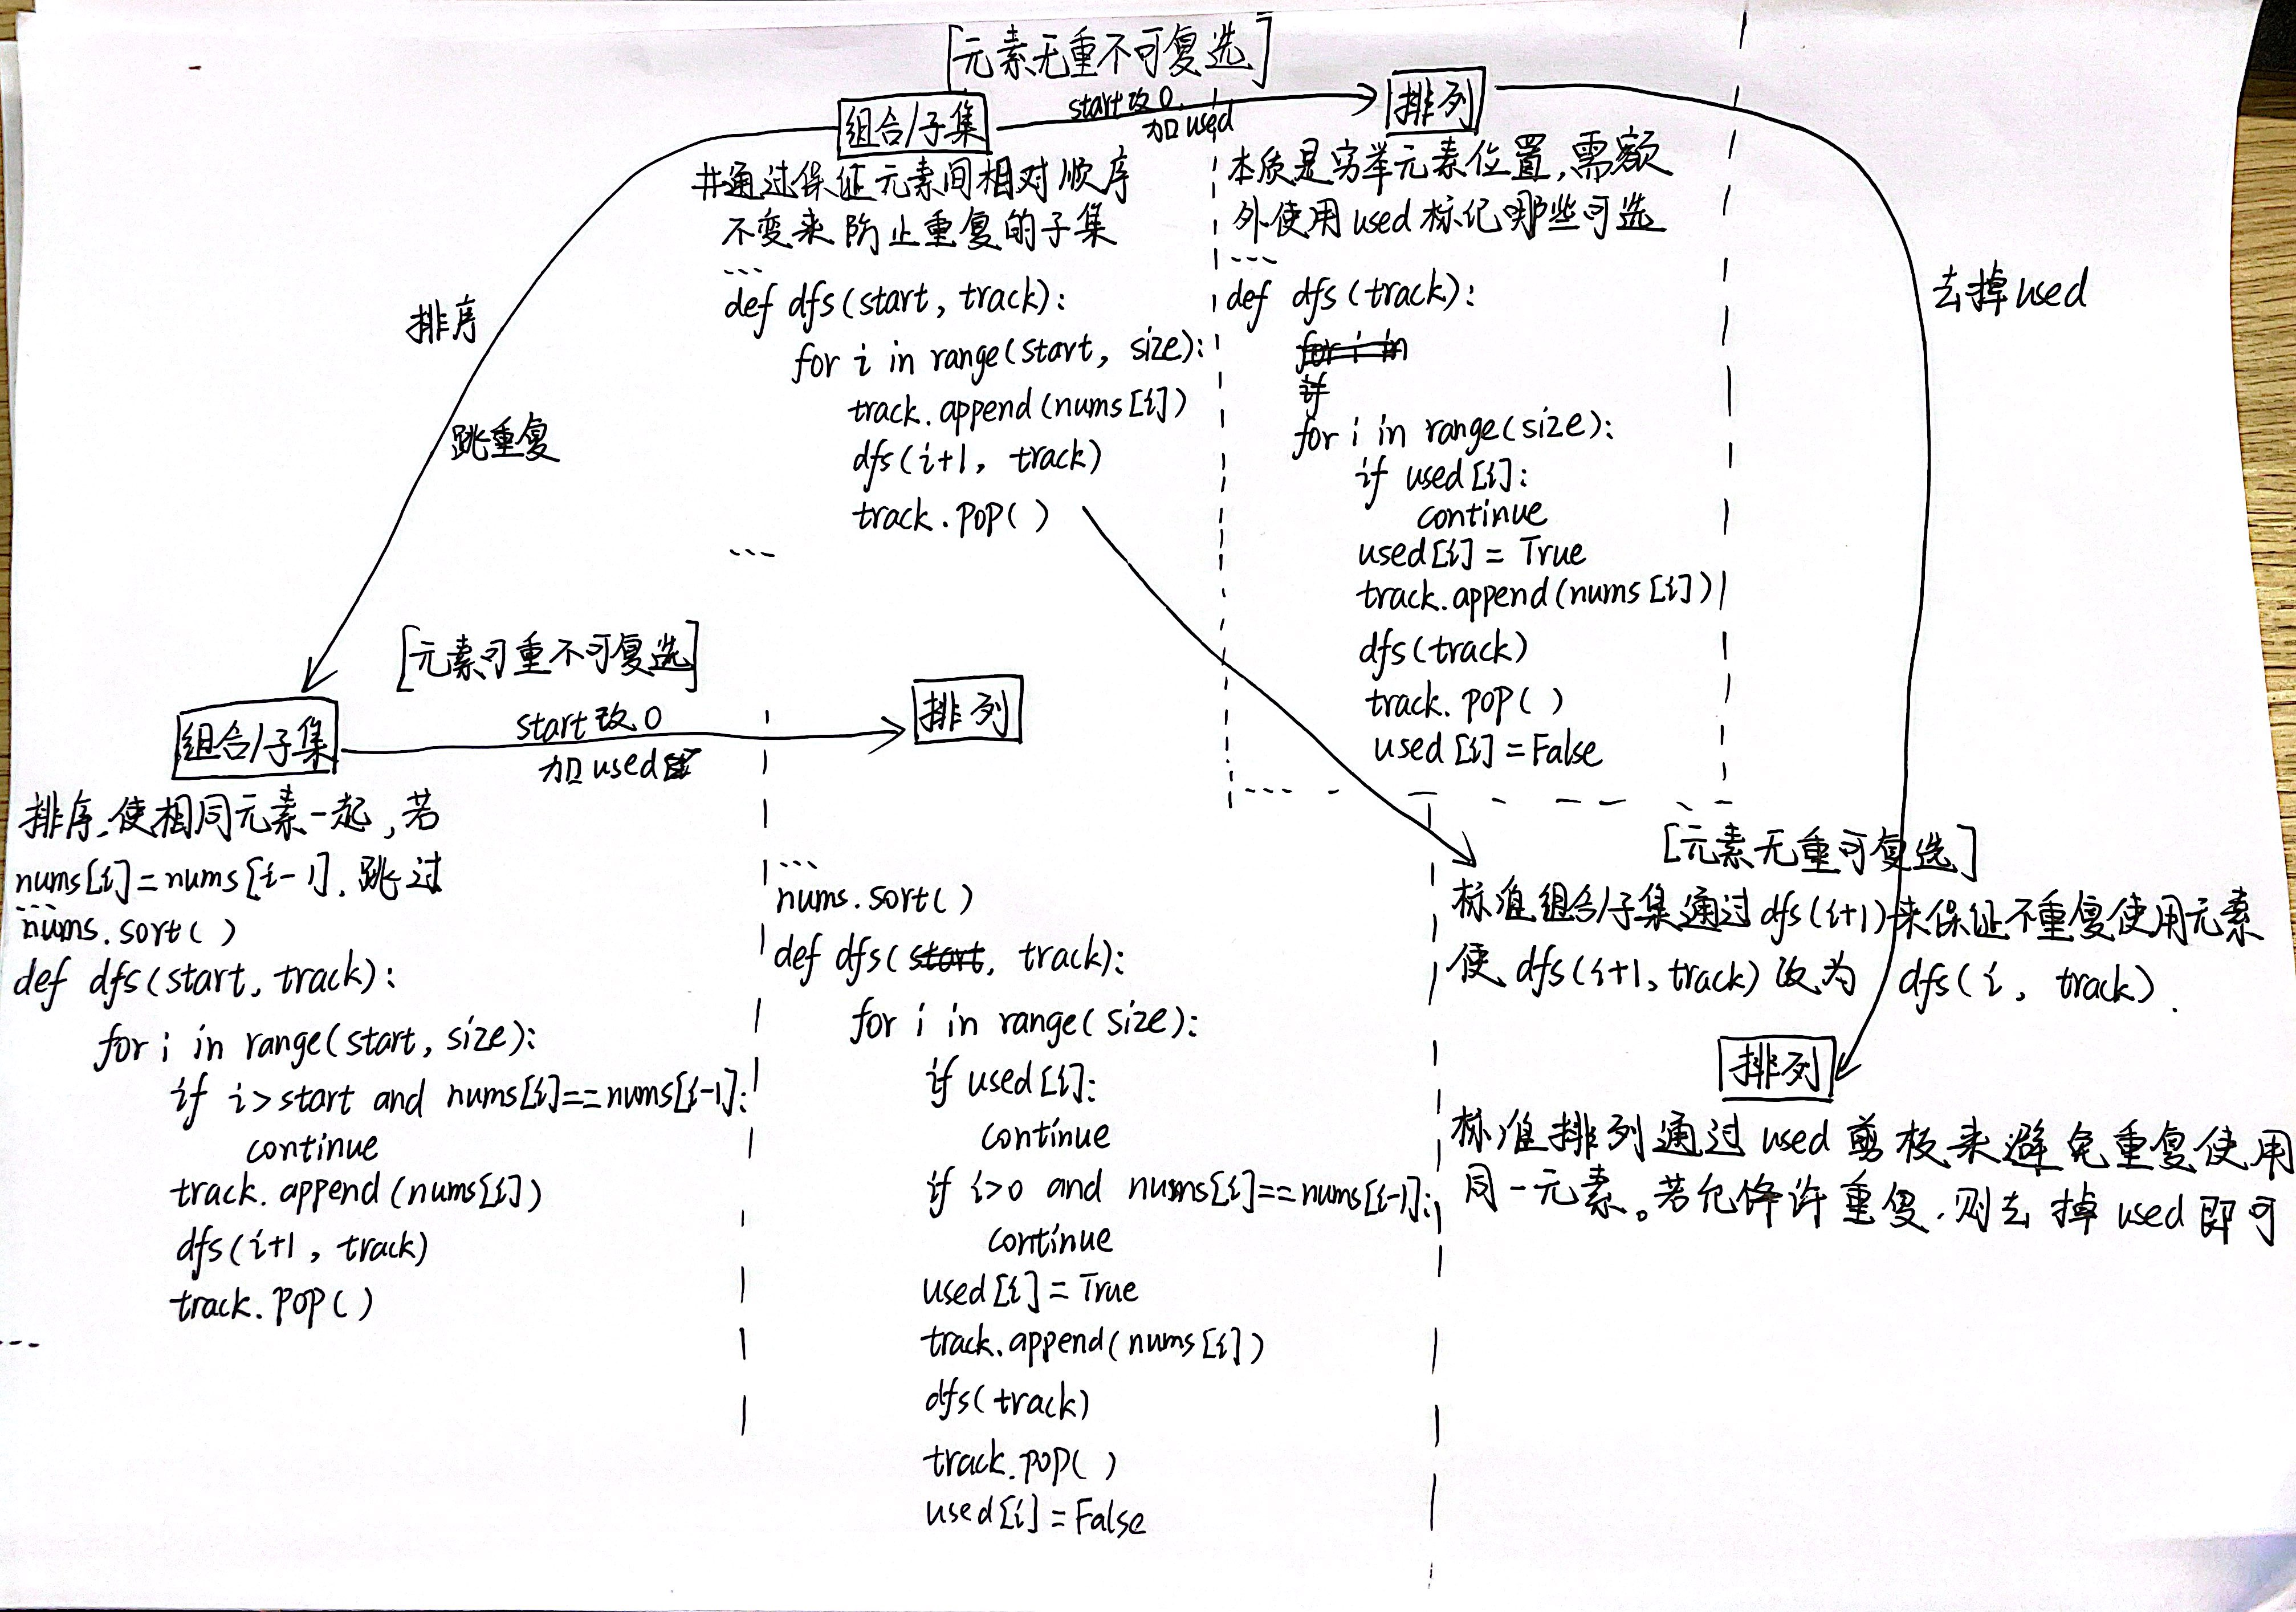 [元素无重不可复选]
组合/子集
start改0.
加used
排列
#通过保证元素间相对顺序
不变来防止重复的子集
...
def dfs(start, track):
for i in range(start, size):
track.append(nums[i])
dfs(i+1, track)
track.pop()
...
本质是穷举元素位置,需额
外使用used标记哪些可选
...
def dfs(track):
for i in
if
for i in range(size):
if used[i]:
continue
used[i] = True
track.append(nums[i])
dfs(track)
track.pop()
used[i] = False
...
去掉used
排序
跳重复
[元素可重不可复选]
组合/子集
start改0
加used
排列
排序,使相同元素一起,若
nums[i]=nums[i-1].跳过
...
nums.sort()
def dfs(start, track):
for i in range(start, size):
if i>start and nums[i]==nums[i-1]:
continue
track.append(nums[i])
dfs(i+1, track)
track.pop()
...
...
nums.sort()
def dfs(start, track):
for i in range(size):
if used[i]:
continue
if i>0 and nums[i]==nums[i-1]:
continue
used[i] = True
track.append(nums[i])
dfs(track)
track.pop()
used[i] = False
[元素无重可复选]
标准组合/子集通过dfs(i+1)来保证不重复使用元素
使dfs(i+1, track)改为dfs(i, track).
排列
标准排列通过used剪板来避免重复使用
同一元素。若允许重复.则去掉used即可